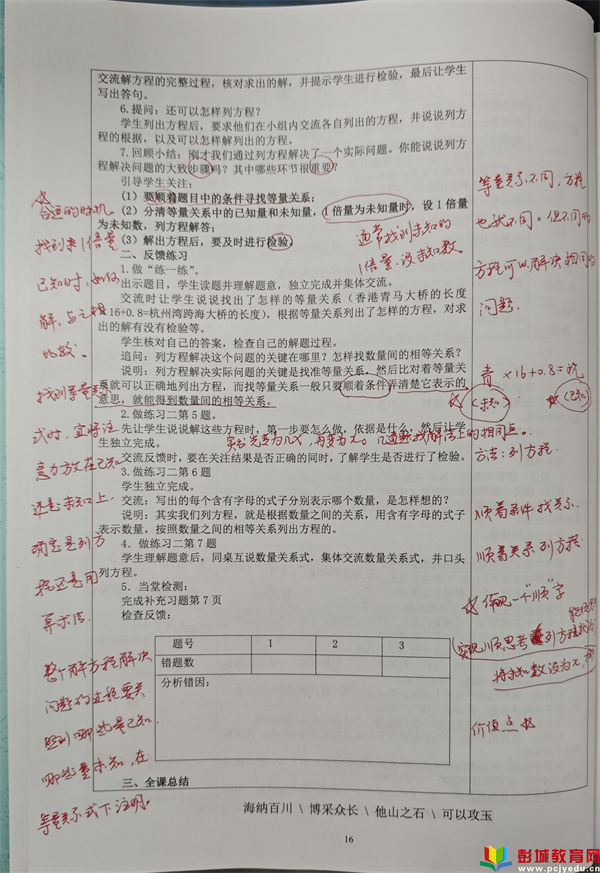 交流解方程的完整过程，核对求出的解，并提示学生进行检验，最后让学生
写出答句。
6.提问：还可以怎样列方程？
学生列出方程后，要求他们在小组内交流各自列出的方程，并说说列方
程的根据，以及可以怎样解列出的方程。
7.回顾小结：刚才我们通过列方程解决了一个实际问题。你能说说列方
程解决问题的大致步骤吗？其中哪些环节很重要？
引导学生关注：
(1) 要顺着题目中的条件寻找等量关系；
(2) 分清等量关系中的已知量和未知量，1倍量为未知量时，设 1 倍量
为未知数，列方程解答；
(3) 解出方程后，要及时进行检验。
二、反馈练习
1.做“练一练”。
出示题目，学生读题并理解题意，独立完成并集体交流。
交流时让学生说说找出了怎样的等量关系（香港青马大桥的长度
×16+0.8=杭州湾跨海大桥的长度），根据等量关系列出了怎样的方程，对求
出的解有没有检验等。
学生核对自己的答案，检查自己的解题过程。
追问：列方程解决这个问题的关键在哪里？怎样找数量间的相等关系？
说明：列方程解决实际问题的关键是找准等量关系，然后比对着等量关
系就可以正确地列出方程，而找等量关系一般只要顺着条件弄清楚它表示的
意思，就能得到数量间的相等关系。
2.做练习二第 5 题。
先让学生说说解这些方程时，第一步要怎么做，依据是什么，然后让学
生独立完成。
交流反馈时，要在关注结果是否正确的同时，了解学生是否进行了检验。
3.做练习二第 6 题
学生独立完成。
交流：写出的每个含有字母的式子分别表示哪个数量，是怎样想的？
说明：其实我们列方程，就是根据数量之间的关系，用含有字母的式子
表示数量，按照数量之间的相等关系列出方程的。
4. 做练习二第 7 题
学生理解题意后，同桌互说数量关系式，集体交流数量关系式，并口头
列方程。
5. 当堂检测：
完成补充习题第 7 页
检查反馈：
题号 1 2 3
错题数
分析错因：
三、全课总结
海纳百川 \ 博采众长 \ 他山之石 \ 可以攻玉
16
合适的时机
找到来1倍量
已知时，如何
解，与之相
比较。
找到等量关系
式时，宜将注
意力放在已知
还是未知上，
确定是列方
程还是用
算术法。
整个解方程解决
问题的过程要关
照到哪些是已知，
哪些量未知，在
等量关系式下注明。
通常找到未知的
1倍量，设未知数
等量关系不同，方程
也就不同。但不同的
方程可以解决相同的
问题。
青×16+0.8=杭
(未知) (已知)
方法：列方程
顺着条件找关系
顺着关系列方程
体现一个“顺”字
将未知数设为x，
价值点
彭城教育网
www.pcjyedu.cn